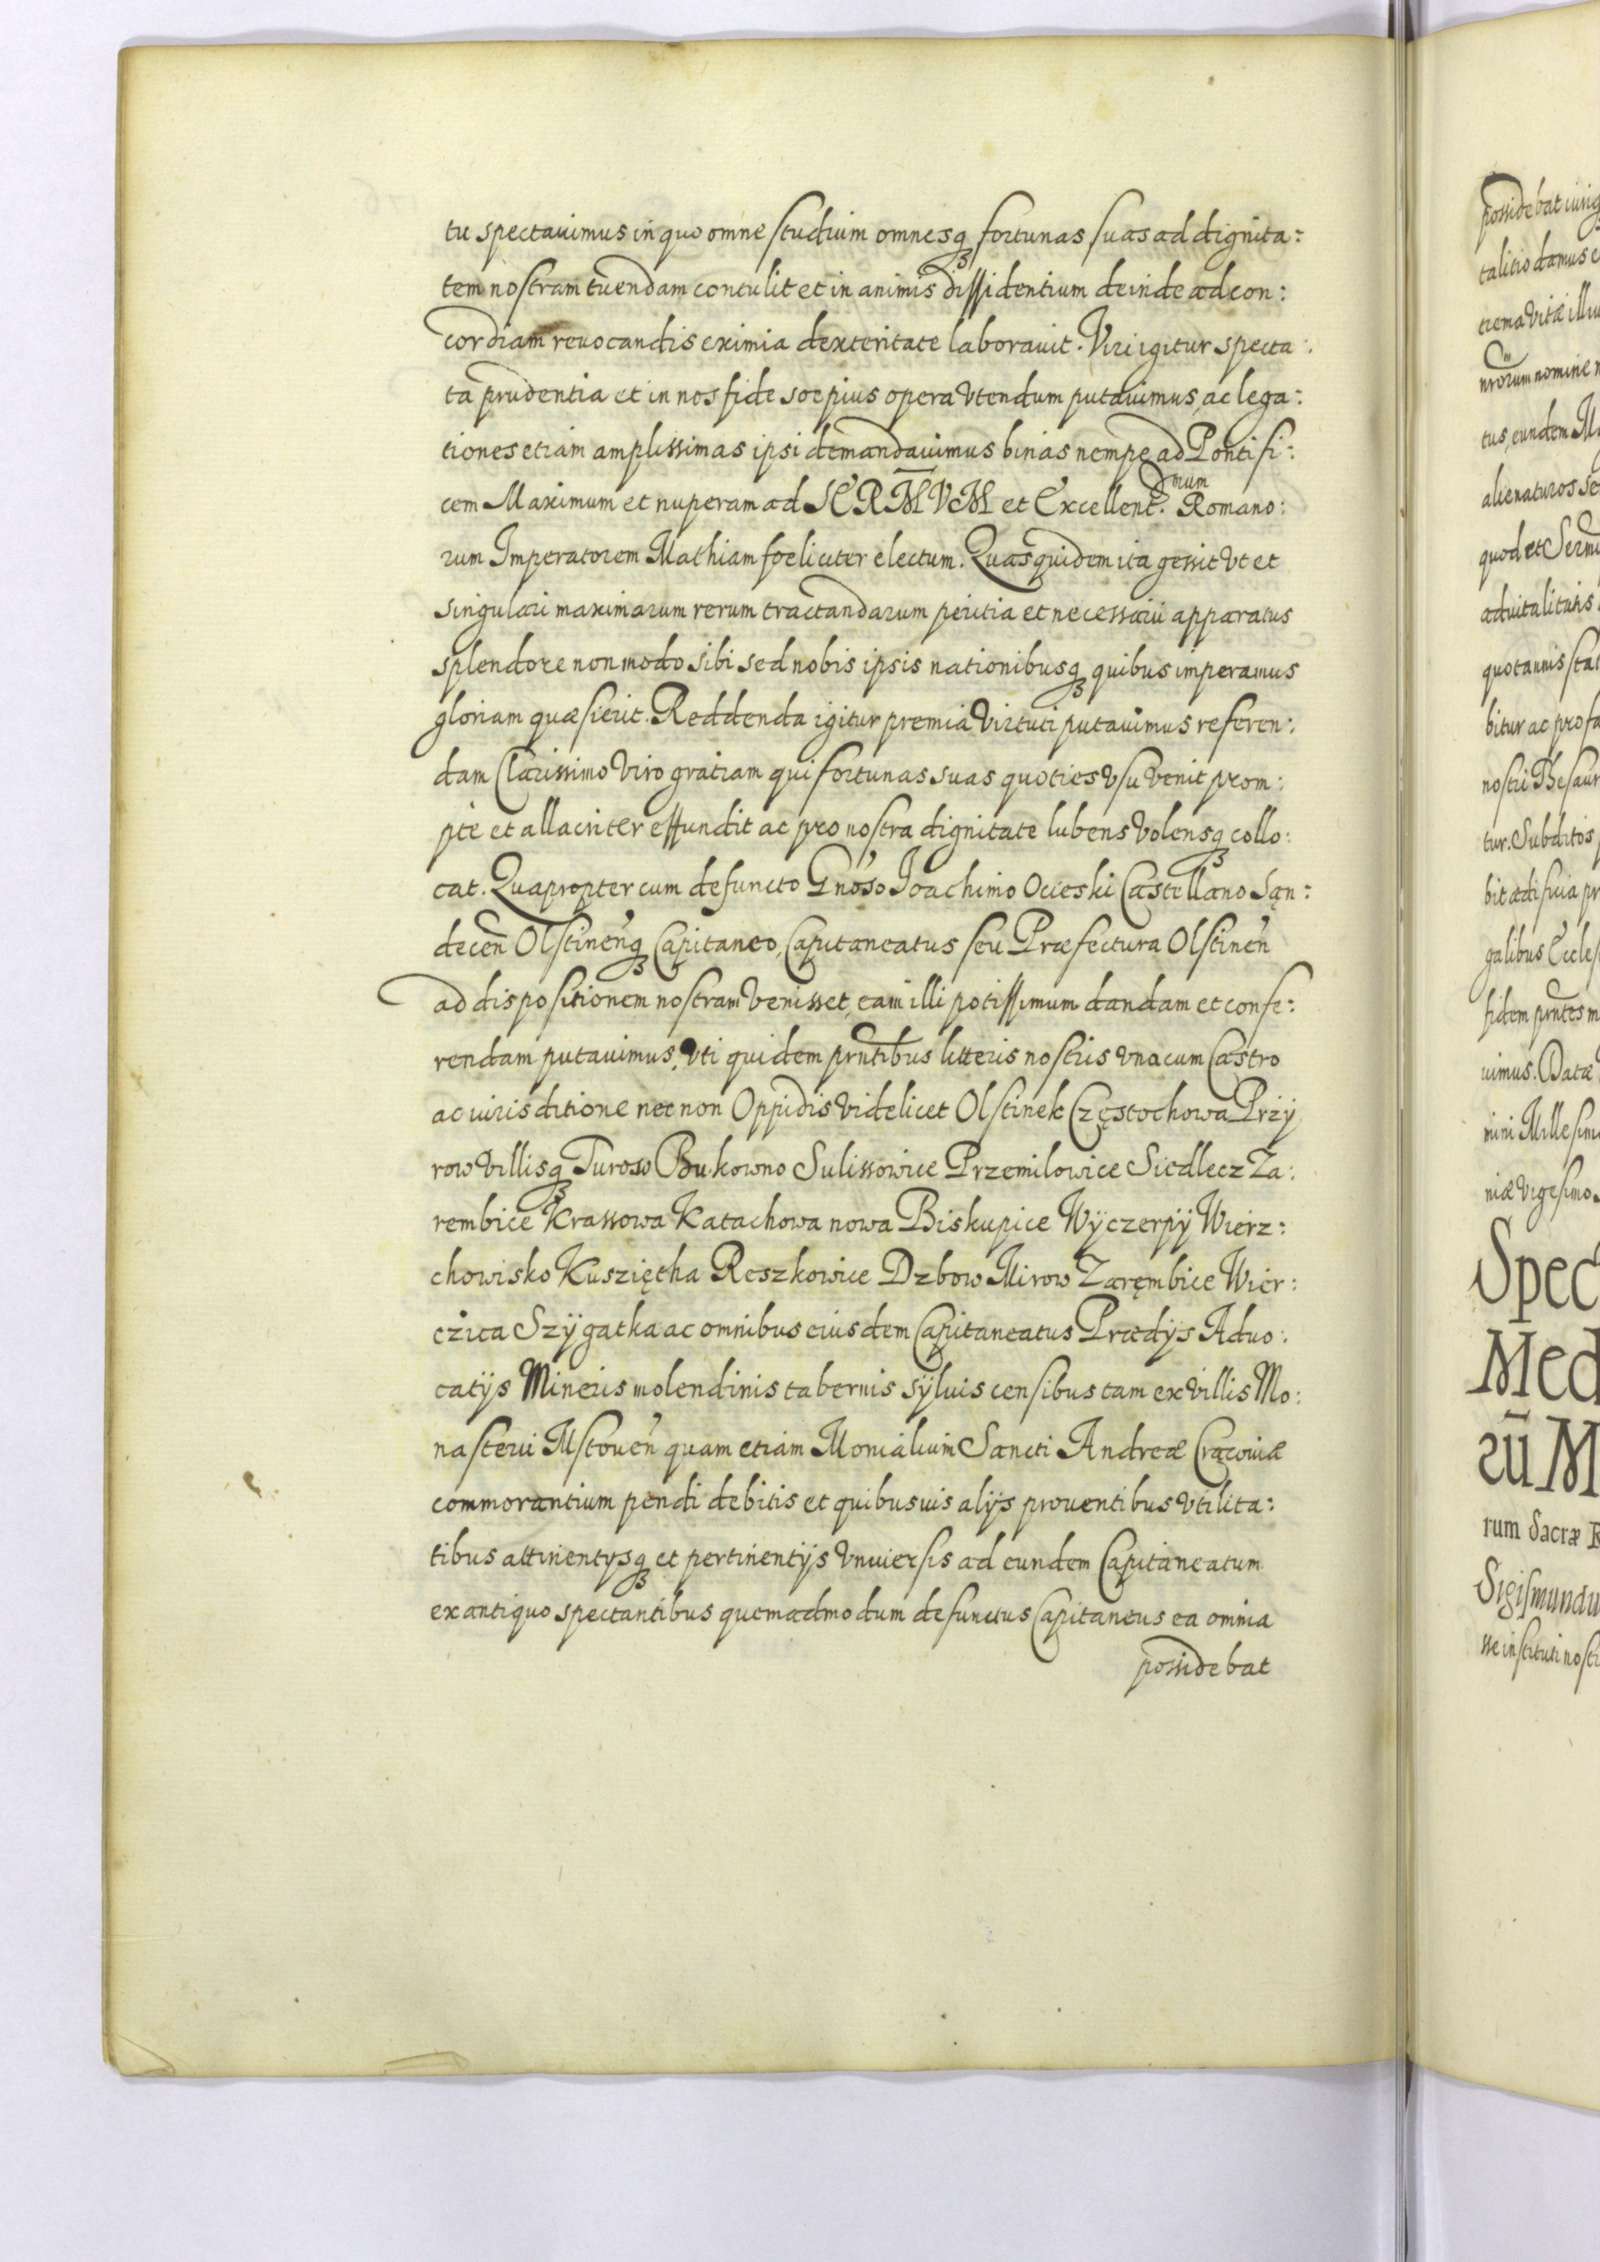 tu spectauimus in quo omne studium omnesq₃ fortunas suas ad dignita:
tem nostram tuendam contulit et in animis dissidentium deinde ad con:
cordiam reuocandis eximia dexteritate laborauit. Viri igitur specta:
ta prudentia et in nos fide soepius opera vtendum putauimus, ac lega:
tiones etiam amplissimas ipsi demandauimus binas nempe ad Pontifi:
cem Maximum et nuperam ad SERM̅VM et Excellent. mum Romano:
rum Imperatorem Mathiam foeliciter electum. Quas quidem ita gessit vt et
singulari maximarum rerum tractandarum peritia et necessarii apparatus
splendore non modo sibi sed nobis ipsis nationibusq₃ quibus imperamus
gloriam quæsierit. Reddenda igitur premia virtuti putauimus referen:
dam Clarissimo viro gratiam qui fortunas suas quoties vsu venit prom:
pte et allacriter effundit ac pro nostra dignitate lubens volensq₃ collo:
cat. Quapropter cum defuncto Gnoso Ioachimo Ocieski Castellano Sąn:
decen̄ Olstinen̄q₃ Capitaneo, Capitaneatus seu Præfectura Olstinen̄
ad dispositionem nostram venisset, eam illi potissimum dandam et confe:
rendam putauimus, vti quidem pn̄tibus litteris nostris vna cum Castro
ac iurisditione nec non Oppidis videlicet Olstinek Częstochowa Przÿ
row villisq₃ Turow Bukowno Sulissowice Przemilowice Siedlecz Za:
rembice Krassowa Katachowa nowa Biskupice Wÿczerpÿ Wierz:
chowisko Kuszięтha Reszkowice Dzbow Mirow Zarębice Wier:
czica Szÿgatka ac omnibus eiusdem Capitaneatus Prædijs Aduo:
catÿs Mineris molendinis tabernis sÿluis censibus tam ex villis Mo:
nasterii Mstouen̄ quam etiam Monialium Sancti Andreæ Cracouiæ
commorantium pendi debitis et quibusuis alÿs prouentibus vtilita:
tibus attinentÿsq₃ et pertinentÿs vniuersis ad eundem Capitaneatum
ex antiquo spectantibus quemadmodum defunctus Capitaneus ea omnia
possidebat
possidebat
talitio damus
trema vitæ
nrorum nomine
tus, eundem
alienaturos
quod et
aduitalitatis
quotannis
bitur ac
nostri Thesaur
tur. Subditos
bit ædificia
galibus
fidem
uimus. Datæ
mini Millesimo
niæ vigesimo
Spec
Med
rū M
rum Sacræ R
Sigismundu
sse instituti